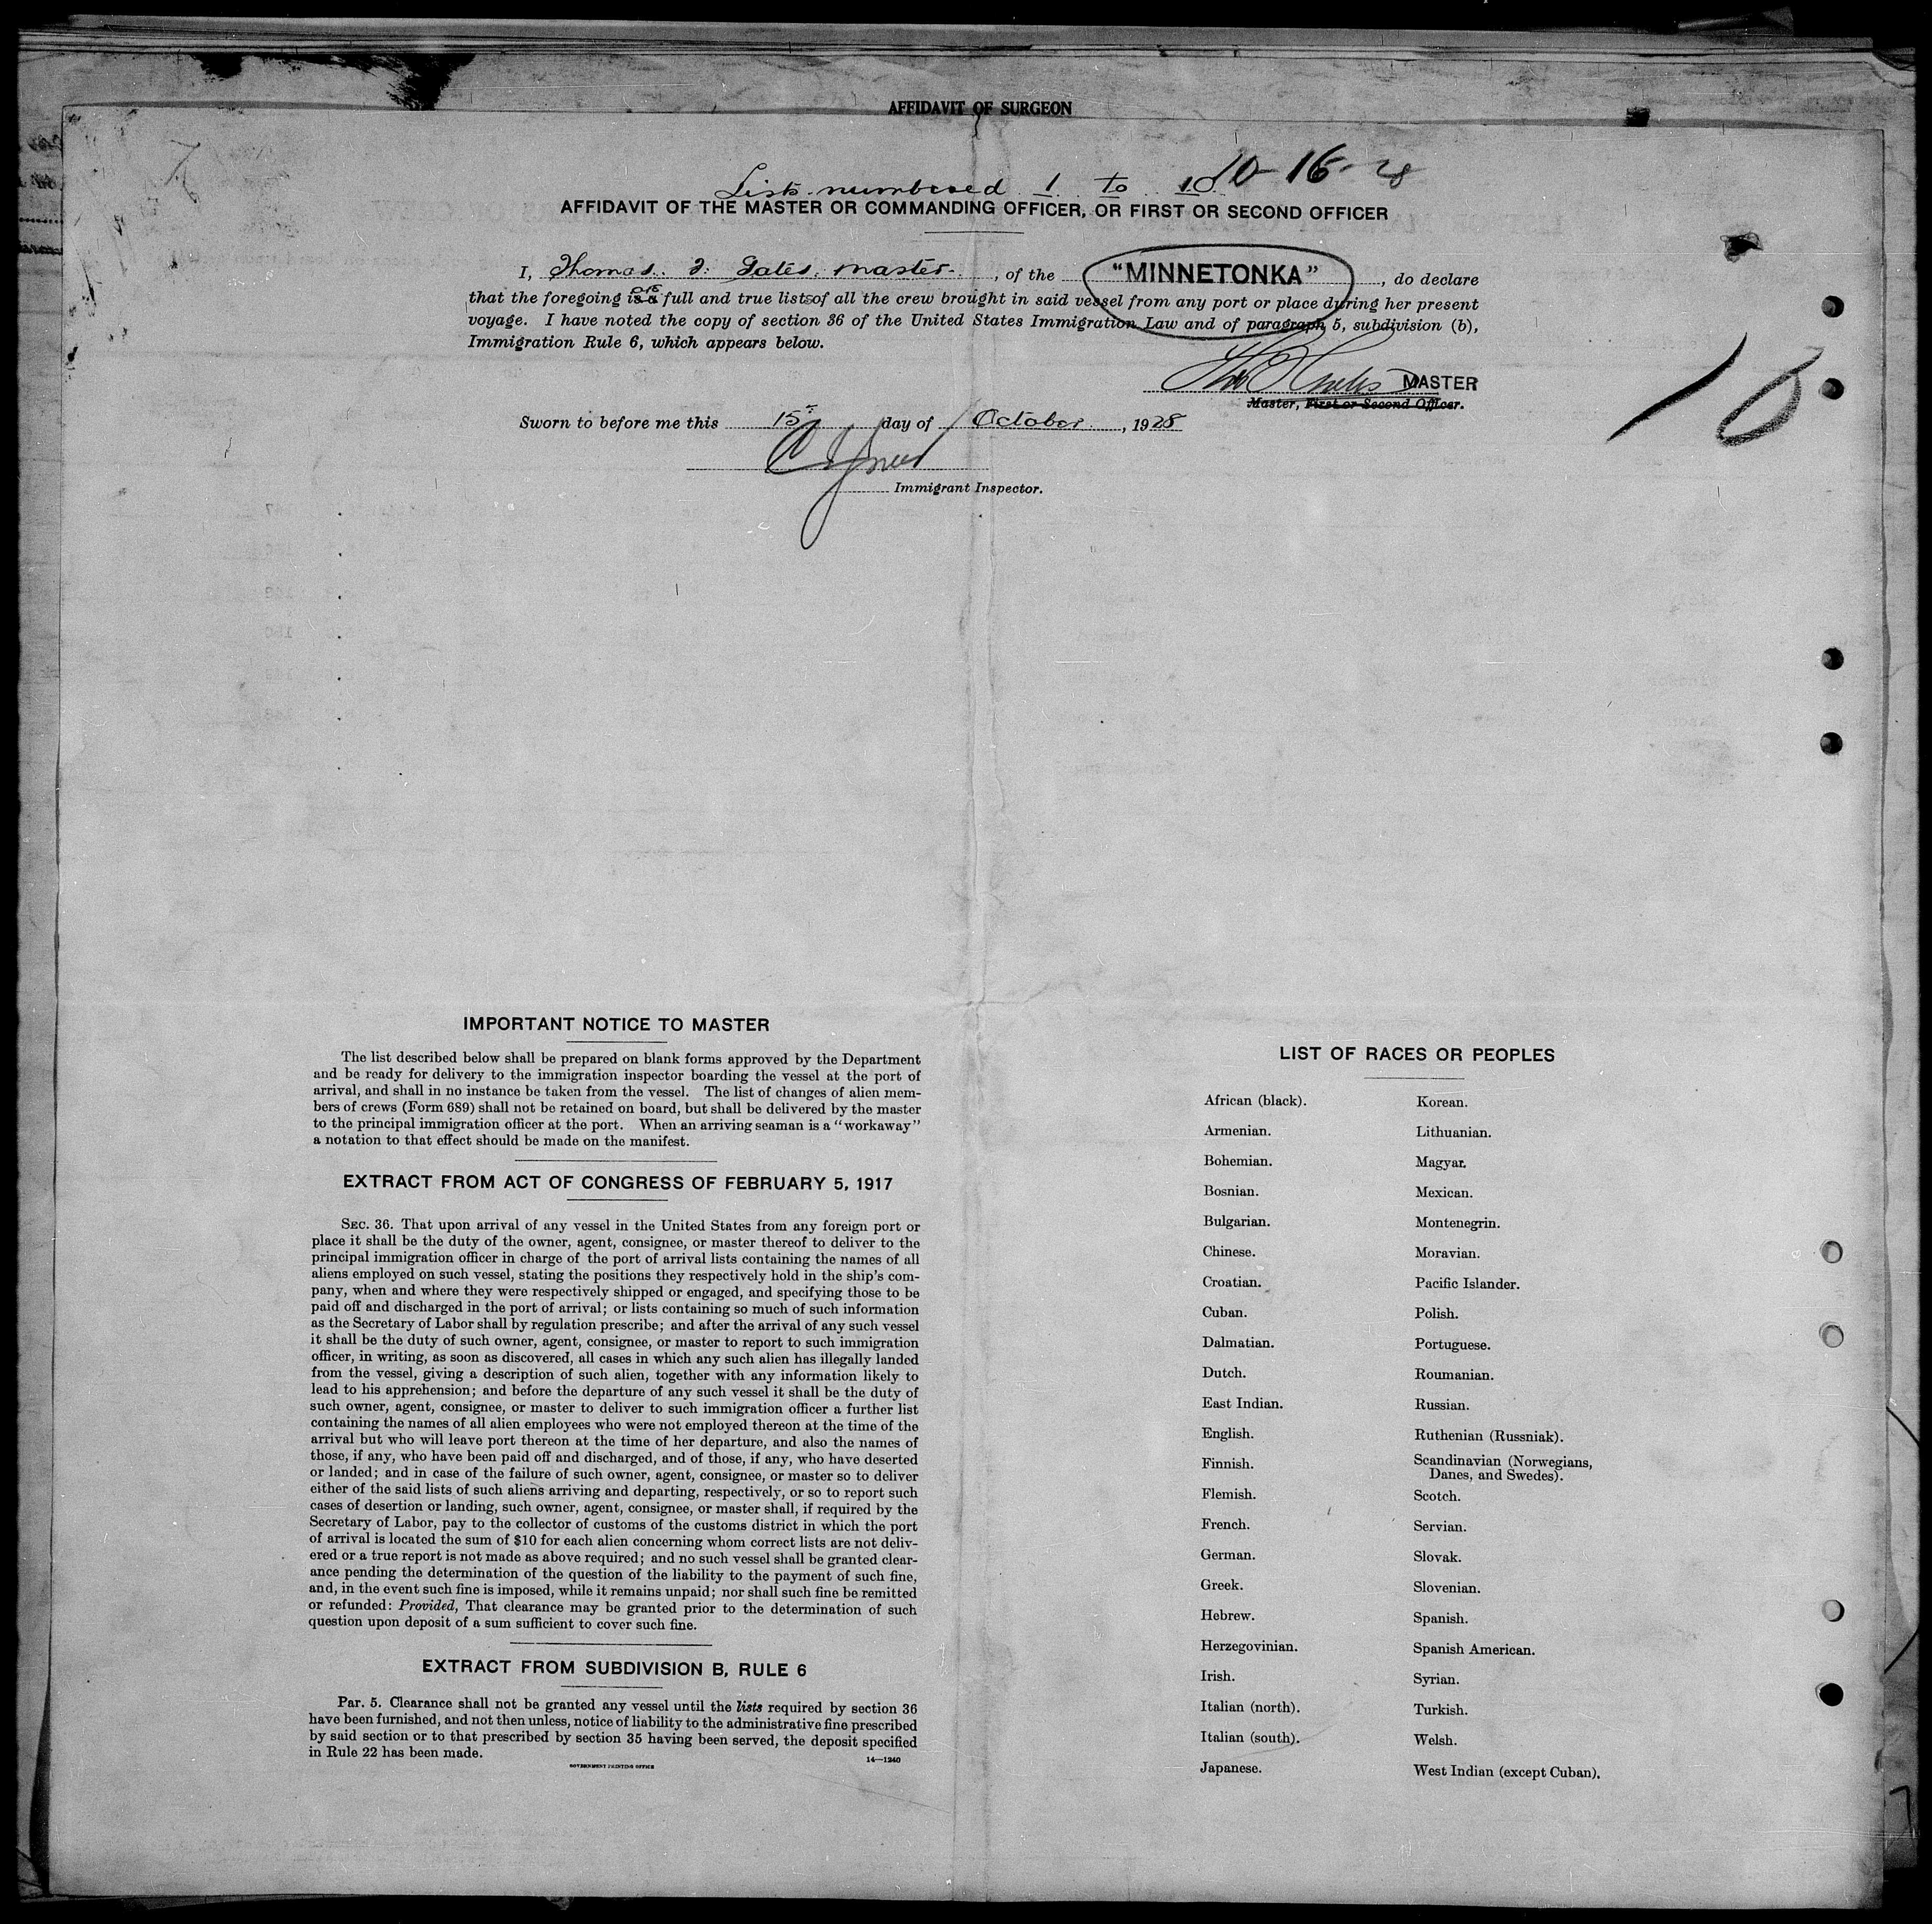 AFFIDAVIT OF SURGEON
10-16-28
Lists numbered 1 to 10
AFFIDAVIT OF THE MASTER OR COMMANDING OFFICER, OR FIRST OR SECOND OFFICER
I, Thomas. F. Gates. master, of the "MINNETONKA", do declare
that the foregoing is a are full and true lists of all the crew brought in said vessel from any port or place during her present
voyage. I have noted the copy of section 36 of the United States Immigration Law and of paragraph 5, subdivision (b),
Immigration Rule 6, which appears below.
MASTER
Master, First or Second Officer.
10
Sworn to before me this 15 day of October, 1928
Immigrant Inspector.
IMPORTANT NOTICE TO MASTER
The list described below shall be prepared on blank forms approved by the Department
and be ready for delivery to the immigration inspector boarding the vessel at the port of
arrival, and shall in no instance be taken from the vessel. The list of changes of alien mem-
bers of crews (Form 689) shall not be retained on board, but shall be delivered by the master
to the principal immigration officer at the port. When an arriving seaman is a "workaway"
a notation to that effect should be made on the manifest.
EXTRACT FROM ACT OF CONGRESS OF FEBRUARY 5, 1917
SEC. 36. That upon arrival of any vessel in the United States from any foreign port or
place it shall be the duty of the owner, agent, consignee, or master thereof to deliver to the
principal immigration officer in charge of the port of arrival lists containing the names of all
aliens employed on such vessel, stating the positions they respectively hold in the ship's com-
pany, when and where they were respectively shipped or engaged, and specifying those to be
paid off and discharged in the port of arrival; or lists containing so much of such information
as the Secretary of Labor shall by regulation prescribe; and after the arrival of any such vessel
it shall be the duty of such owner, agent, consignee, or master to report to such immigration
officer, in writing, as soon as discovered, all cases in which any such alien has illegally landed
from the vessel, giving a description of such alien, together with any information likely to
lead to his apprehension; and before the departure of any such vessel it shall be the duty of
such owner, agent, consignee, or master to deliver to such immigration officer a further list
containing the names of all alien employees who were not employed thereon at the time of the
arrival but who will leave port thereon at the time of her departure, and also the names of
those, if any, who have been paid off and discharged, and of those, if any, who have deserted
or landed; and in case of the failure of such owner, agent, consignee, or master so to deliver
either of the said lists of such aliens arriving and departing, respectively, or so to report such
cases of desertion or landing, such owner, agent, consignee, or master shall, if required by the
Secretary of Labor, pay to the collector of customs of the customs district in which the port
of arrival is located the sum of $10 for each alien concerning whom correct lists are not deliv-
ered or a true report is not made as above required; and no such vessel shall be granted clear-
ance pending the determination of the question of the liability to the payment of such fine,
and, in the event such fine is imposed, while it remains unpaid; nor shall such fine be remitted
or refunded: Provided, That clearance may be granted prior to the determination of such
question upon deposit of a sum sufficient to cover such fine.
EXTRACT FROM SUBDIVISION B, RULE 6
Par. 5. Clearance shall not be granted any vessel until the lists required by section 36
have been furnished, and not then unless, notice of liability to the administrative fine prescribed
by said section or to that prescribed by section 35 having been served, the deposit specified
in Rule 22 has been made.
14—1240
GOVERNMENT PRINTING OFFICE
LIST OF RACES OR PEOPLES
African (black).
Armenian.
Bohemian.
Bosnian.
Bulgarian.
Chinese.
Croatian.
Cuban.
Dalmatian.
Dutch.
East Indian.
English.
Finnish.
Flemish.
French.
German.
Greek.
Hebrew.
Herzegovinian.
Irish.
Italian (north).
Italian (south).
Japanese.
Korean.
Lithuanian.
Magyar.
Mexican.
Montenegrin.
Moravian.
Pacific Islander.
Polish.
Portuguese.
Roumanian.
Russian.
Ruthenian (Russniak).
Scandinavian (Norwegians,
Danes, and Swedes).
Scotch.
Servian.
Slovak.
Slovenian.
Spanish.
Spanish American.
Syrian.
Turkish.
Welsh.
West Indian (except Cuban).